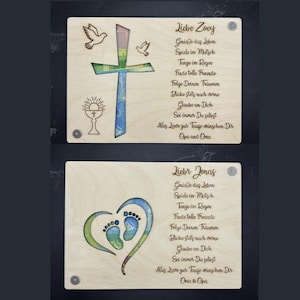 Liebe Zoey
Genieße das Leben
Spiele im Matsch
Tanze im Regen
Finde tolle Freunde
Folge Deinen Träumen
Blicke stets nach vorne
Glaube an Dich
Sei immer Du selbst
Alles Liebe zur Taufe wünschen Dir
Opa und Oma
Lieber Jonas
Genieße das Leben
Spiele im Matsch
Tanze im Regen
Finde tolle Freunde
Folge Deinen Träumen
Blicke stets nach vorne
Glaube an Dich
Sei immer Du selbst
Alles Liebe zur Taufe wünschen Dir
Oma & Opa